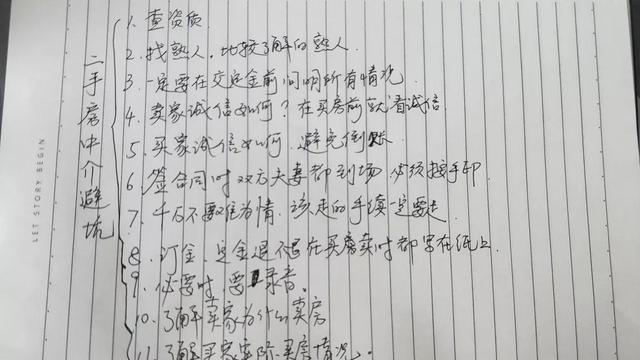 LET STORY BEGIN
二手房中介避坑
1. 查资质
2. 找熟人. 比较了解的熟人.
3. 一定要在交定金前问明所有情况
4. 卖家诚信如何? 在买房前就看诚信
5. 买家诚信如何. 避免倒账
6. 签合同时双方夫妻都到场 必须按手印
7. 千万不要难为情. 该走的手续一定要走.
8. 订金. 定金退不退 在买房卖时都写在纸上.
9. 必要时. 要录音.
10. 了解买家为什么卖房
11. 了解买家实际买房情况.